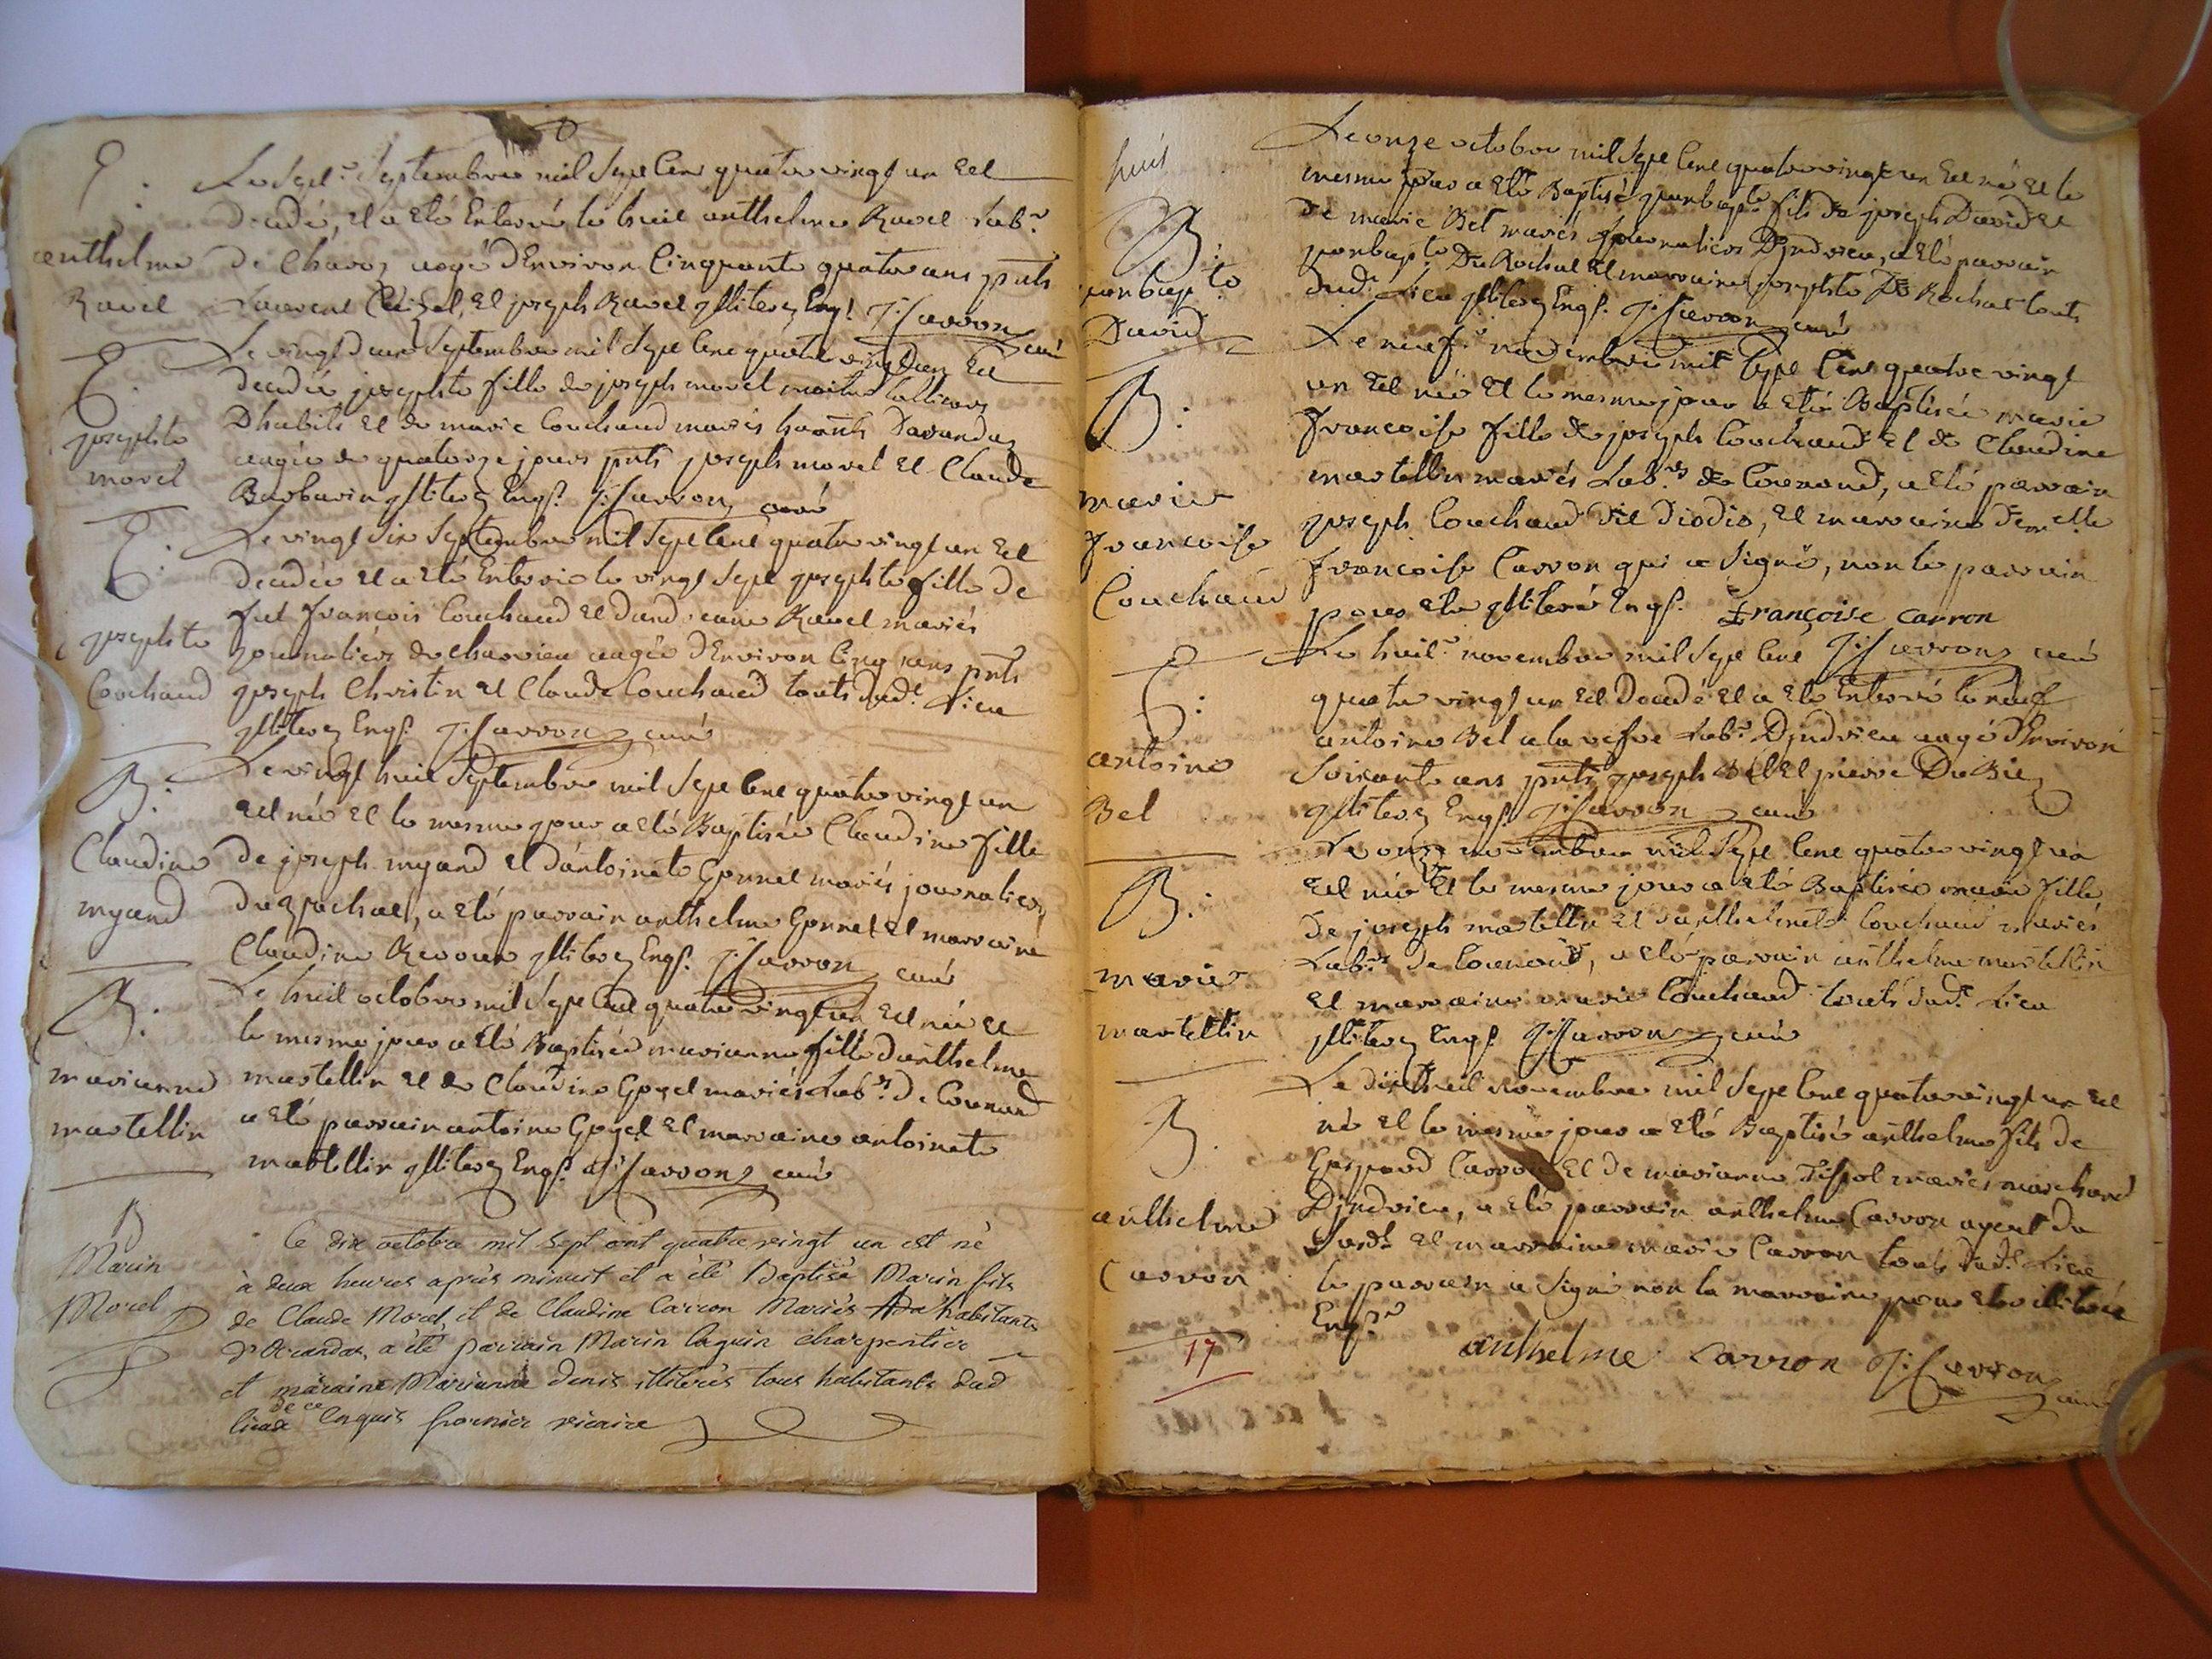 E.
Le sept septembre mil sept cens quatre vingt un est
decedé, et a eté enterré le huit anthelme Ravel lab.r
anthelme
Ravel
de Charoz aagé d'environ cinquante quatre ans pnts
et joseph Ravel illiterez enq.s J: Carron curé
E.
Le vingt deux septembre mil sept cent quatre vingt un est
decedée josephte fille de joseph morel maitre
josephte
morel
et de marie Couchaud mariés Darandaz
aagée de quatorze jours pnts joseph morel et Claude
Barbarin illiterez enq.s J: Carron curé
E.
Le vingt six septembre mil sept cent quatre vingt un est
decedée et a eté enterrée le vingt sept josephte fille de
josephte
Couchaud
feu françois Couchaud et Ravel mariés
journaliers de charvieu aagée d'environ cinq ans pnts
joseph Christin et Claude Couchaud touts dud.t lieu
illiterez enq.s J: Carron curé
B.
Le vingt huit septembre mil sept cent quatre vingt un
est née et le mesme jour a eté Baptisée Claudine fille
Claudine
myand
de joseph myand et d'antoinete Gonnet mariés journaliers
a eté parrain anthelme Gonnet et marraine
Claudine illiterez enq.s J: Carron curé
B.
Le huit octobre mil sept cent quatre vingt un est née et
le mesme jour a eté Baptisée marianne fille d'anthelme
marianne
martellin
martellin et de Claudine Goyet mariés Lab.rs de Conand
a eté parrain antoine Goyet et marraine antoinete
martellin illiterez enq.s J: Carron curé
B
Marin
Morel
Ce dix octobre mil sept cent quatre vingt un est né
à deux heures après minuit et a été Baptisé Marin fils
de Claude Morel, et de Claudine Carron Mariés habitants
d'Arandas, a été parrain Marin laguin charpentier
et maraine Marianne denis illiterés tous habitants dud
lieu de ce enquis fournier vicaire
huit
Le onze octobre mil sept cent quatre vingt un est né et le
mesme jour a eté Baptisé jeanbap.te fils de joseph David et
B.
jeanbap.te
David
de marie Bel mariés journaliers Djndrieu, a eté parrain
jeanbap.te Du Rochat et marraine josephte Du Rochat touts
dud.t lieu illiterez enq.s J: Carron curé
B.
Le neuf novembre mil sept cent quatre vingt
un est née et le mesme jour a eté Baptisée marie
marie
francoise
Couchaud
francoise fille de joseph Couchaud et de Claudine
martellin mariés Lab.rs de Conand, a eté parrain
joseph Couchaud dit diodis, et marraine demelle
francoise Carron qui a signé, non le parrain
pour etre illiteré enq.s Françoise carron
J: Carron curé
E.
Le huit novembre mil sept cent
quatre vingt un est decedé et a eté enterré le neuf
antoine
Bel
antoine Bel lab.r Djndrieu aagé d'environ
soixante ans pnts joseph Bel et pierre Du
illiterez enq.s J: Carron curé
B.
Le onze novembre mil sept cent quatre vingt un
est née et le mesme jour a eté Baptisée marie fille
marie
martellin
de joseph martellin et d'anthelmete Couchaud mariés
Lab.rs de Conand, a eté parrain anthelme martellin
et marraine marie Couchaud touts dud.t lieu
illiterez enq.s J: Carron curé
B.
Le dixhuit novembre mil sept cent quatre vingt un est
né et le mesme jour a eté Baptisé anthelme fils de
anthelme
Carron
Gaspard Carron et de marianne Tissot mariés marchand
Djndrieu, a eté parrain anthelme Carron agent du
et marraine marie Carron touts dud.t lieu
le parrain a signé non la marraine pour etre illiterée
enq.se
anthelme carron J: Carron
curé
17